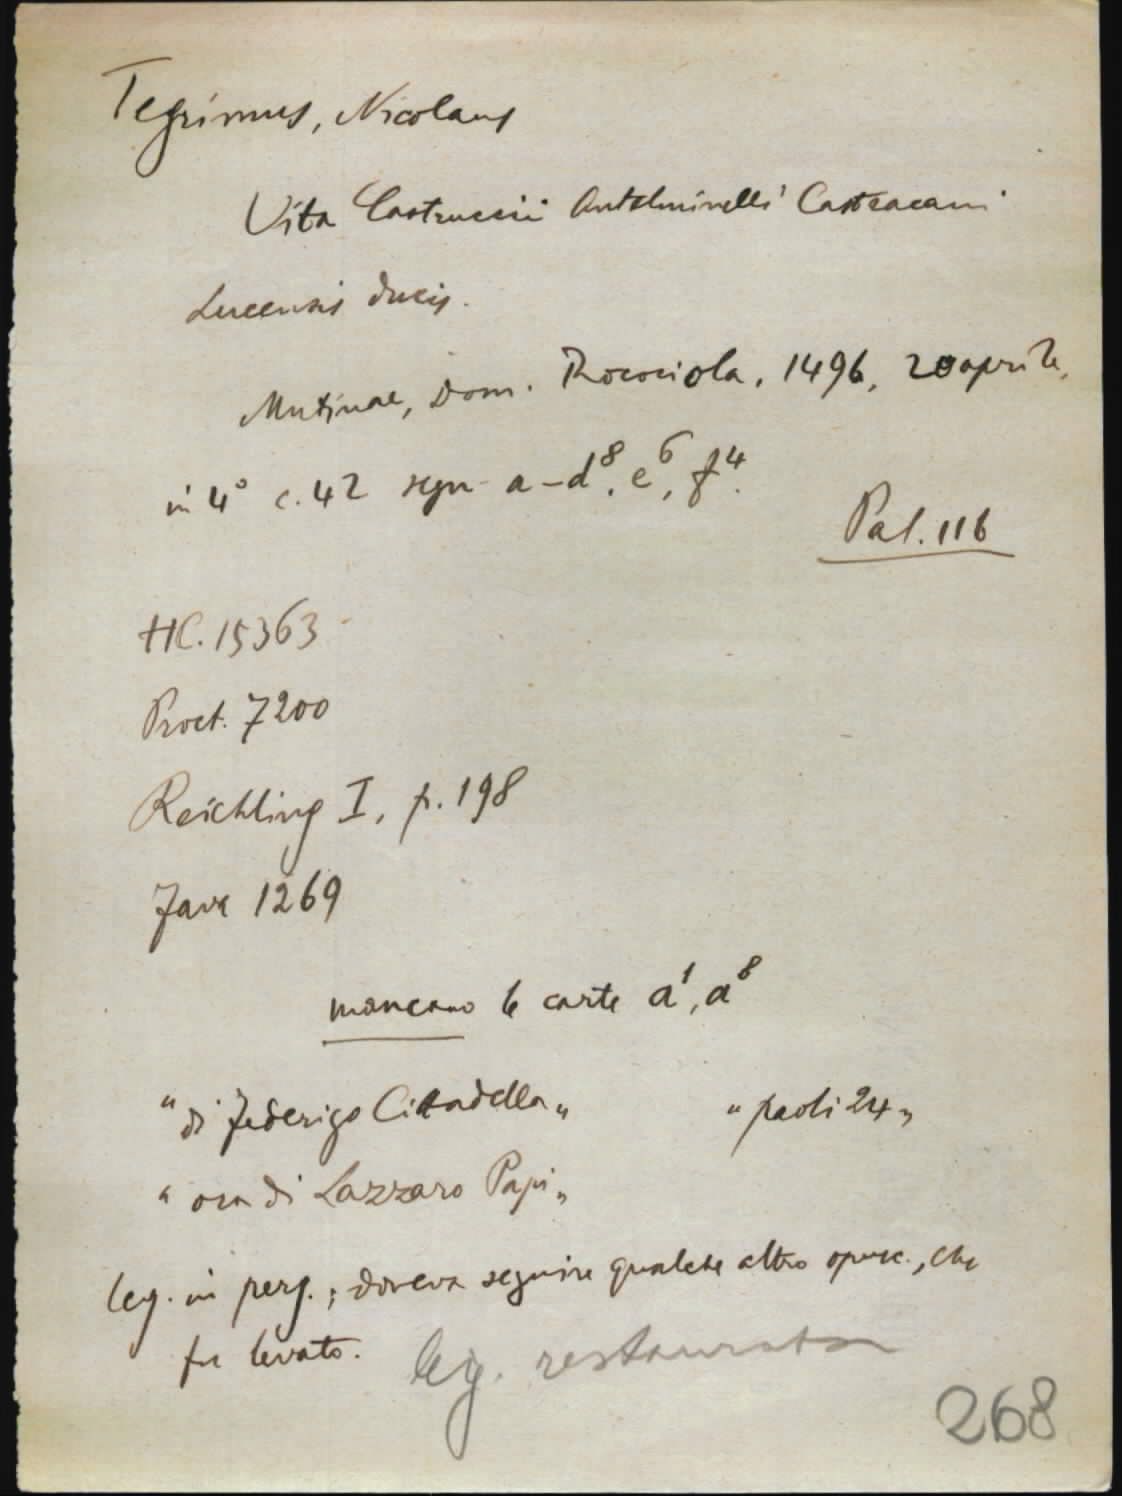 Tegrimus, Nicolaus
Vita Castruccii Antelminelli Castracani
Lucensis ducis.
Mutinae, Dom. Rococciola, 1496, 20 aprile,
in 4° c. 42 segn. a-d⁸, e⁶, f⁴.
Pal. 116
HC. 15363
Proct. 7200
Reichling I, p. 198
Fava 1269
mancano le carte a¹, a⁸
"di Federigo Cittadella" "paoli 24"
"ora di Lazzaro Papi"
leg. in perg.; doveva seguire qualche altro opusc., che
fu levato. leg. restaurata
268